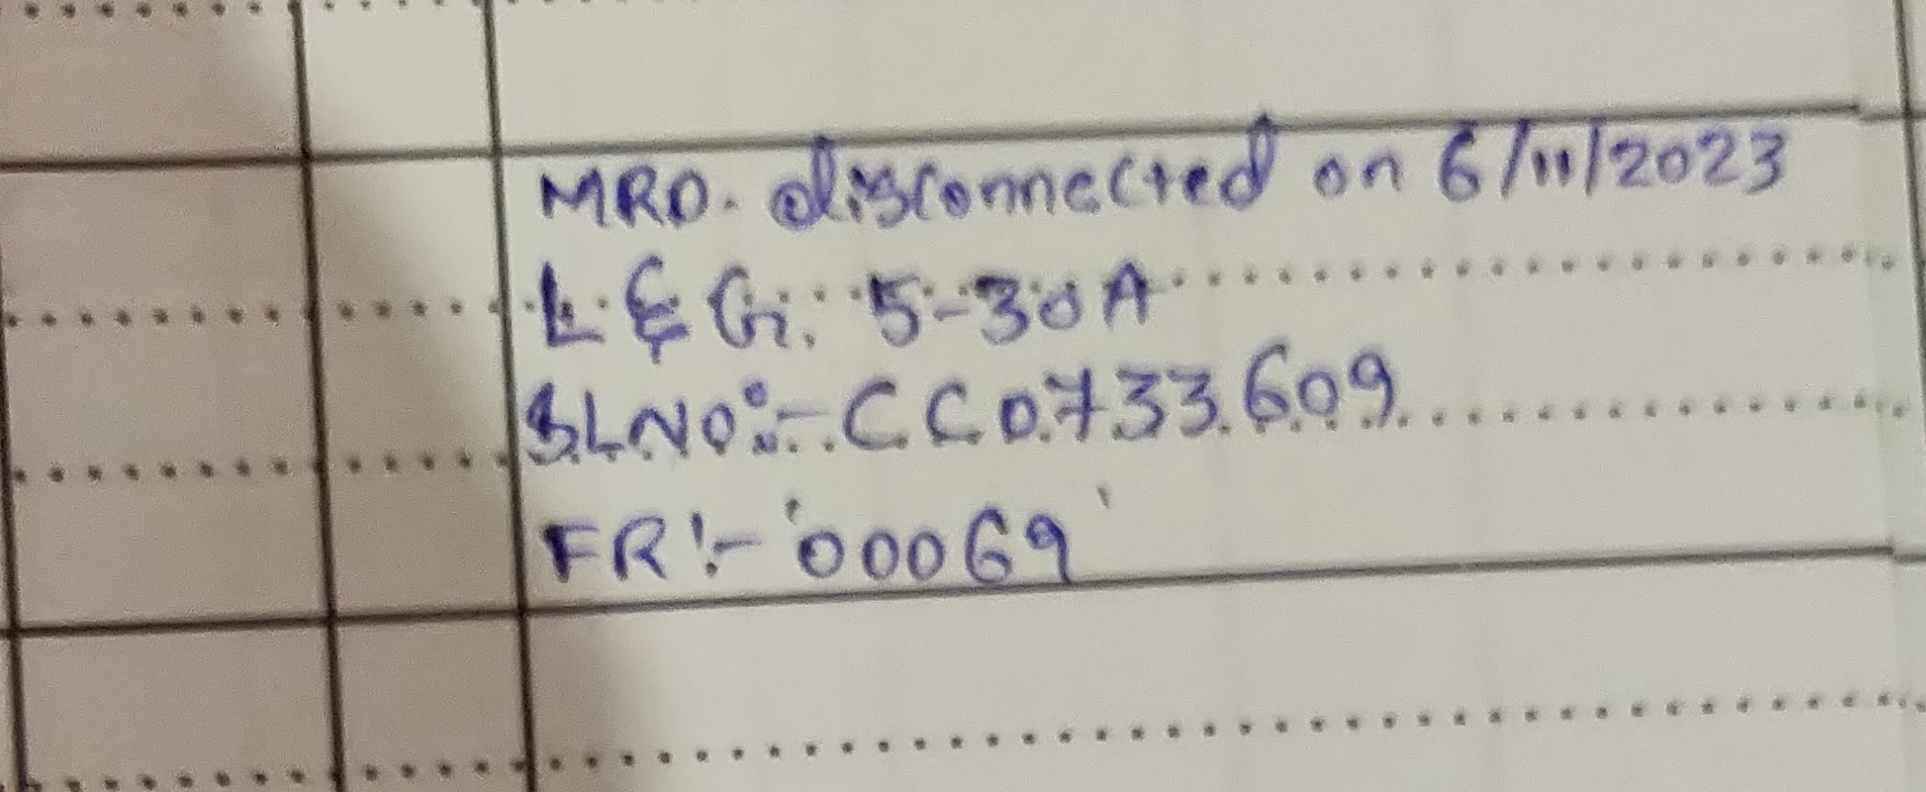 MRD. disconnected on 6/11/2023
L & G. 5-30A
SLNO:- CC0733609
FR:- '00069'